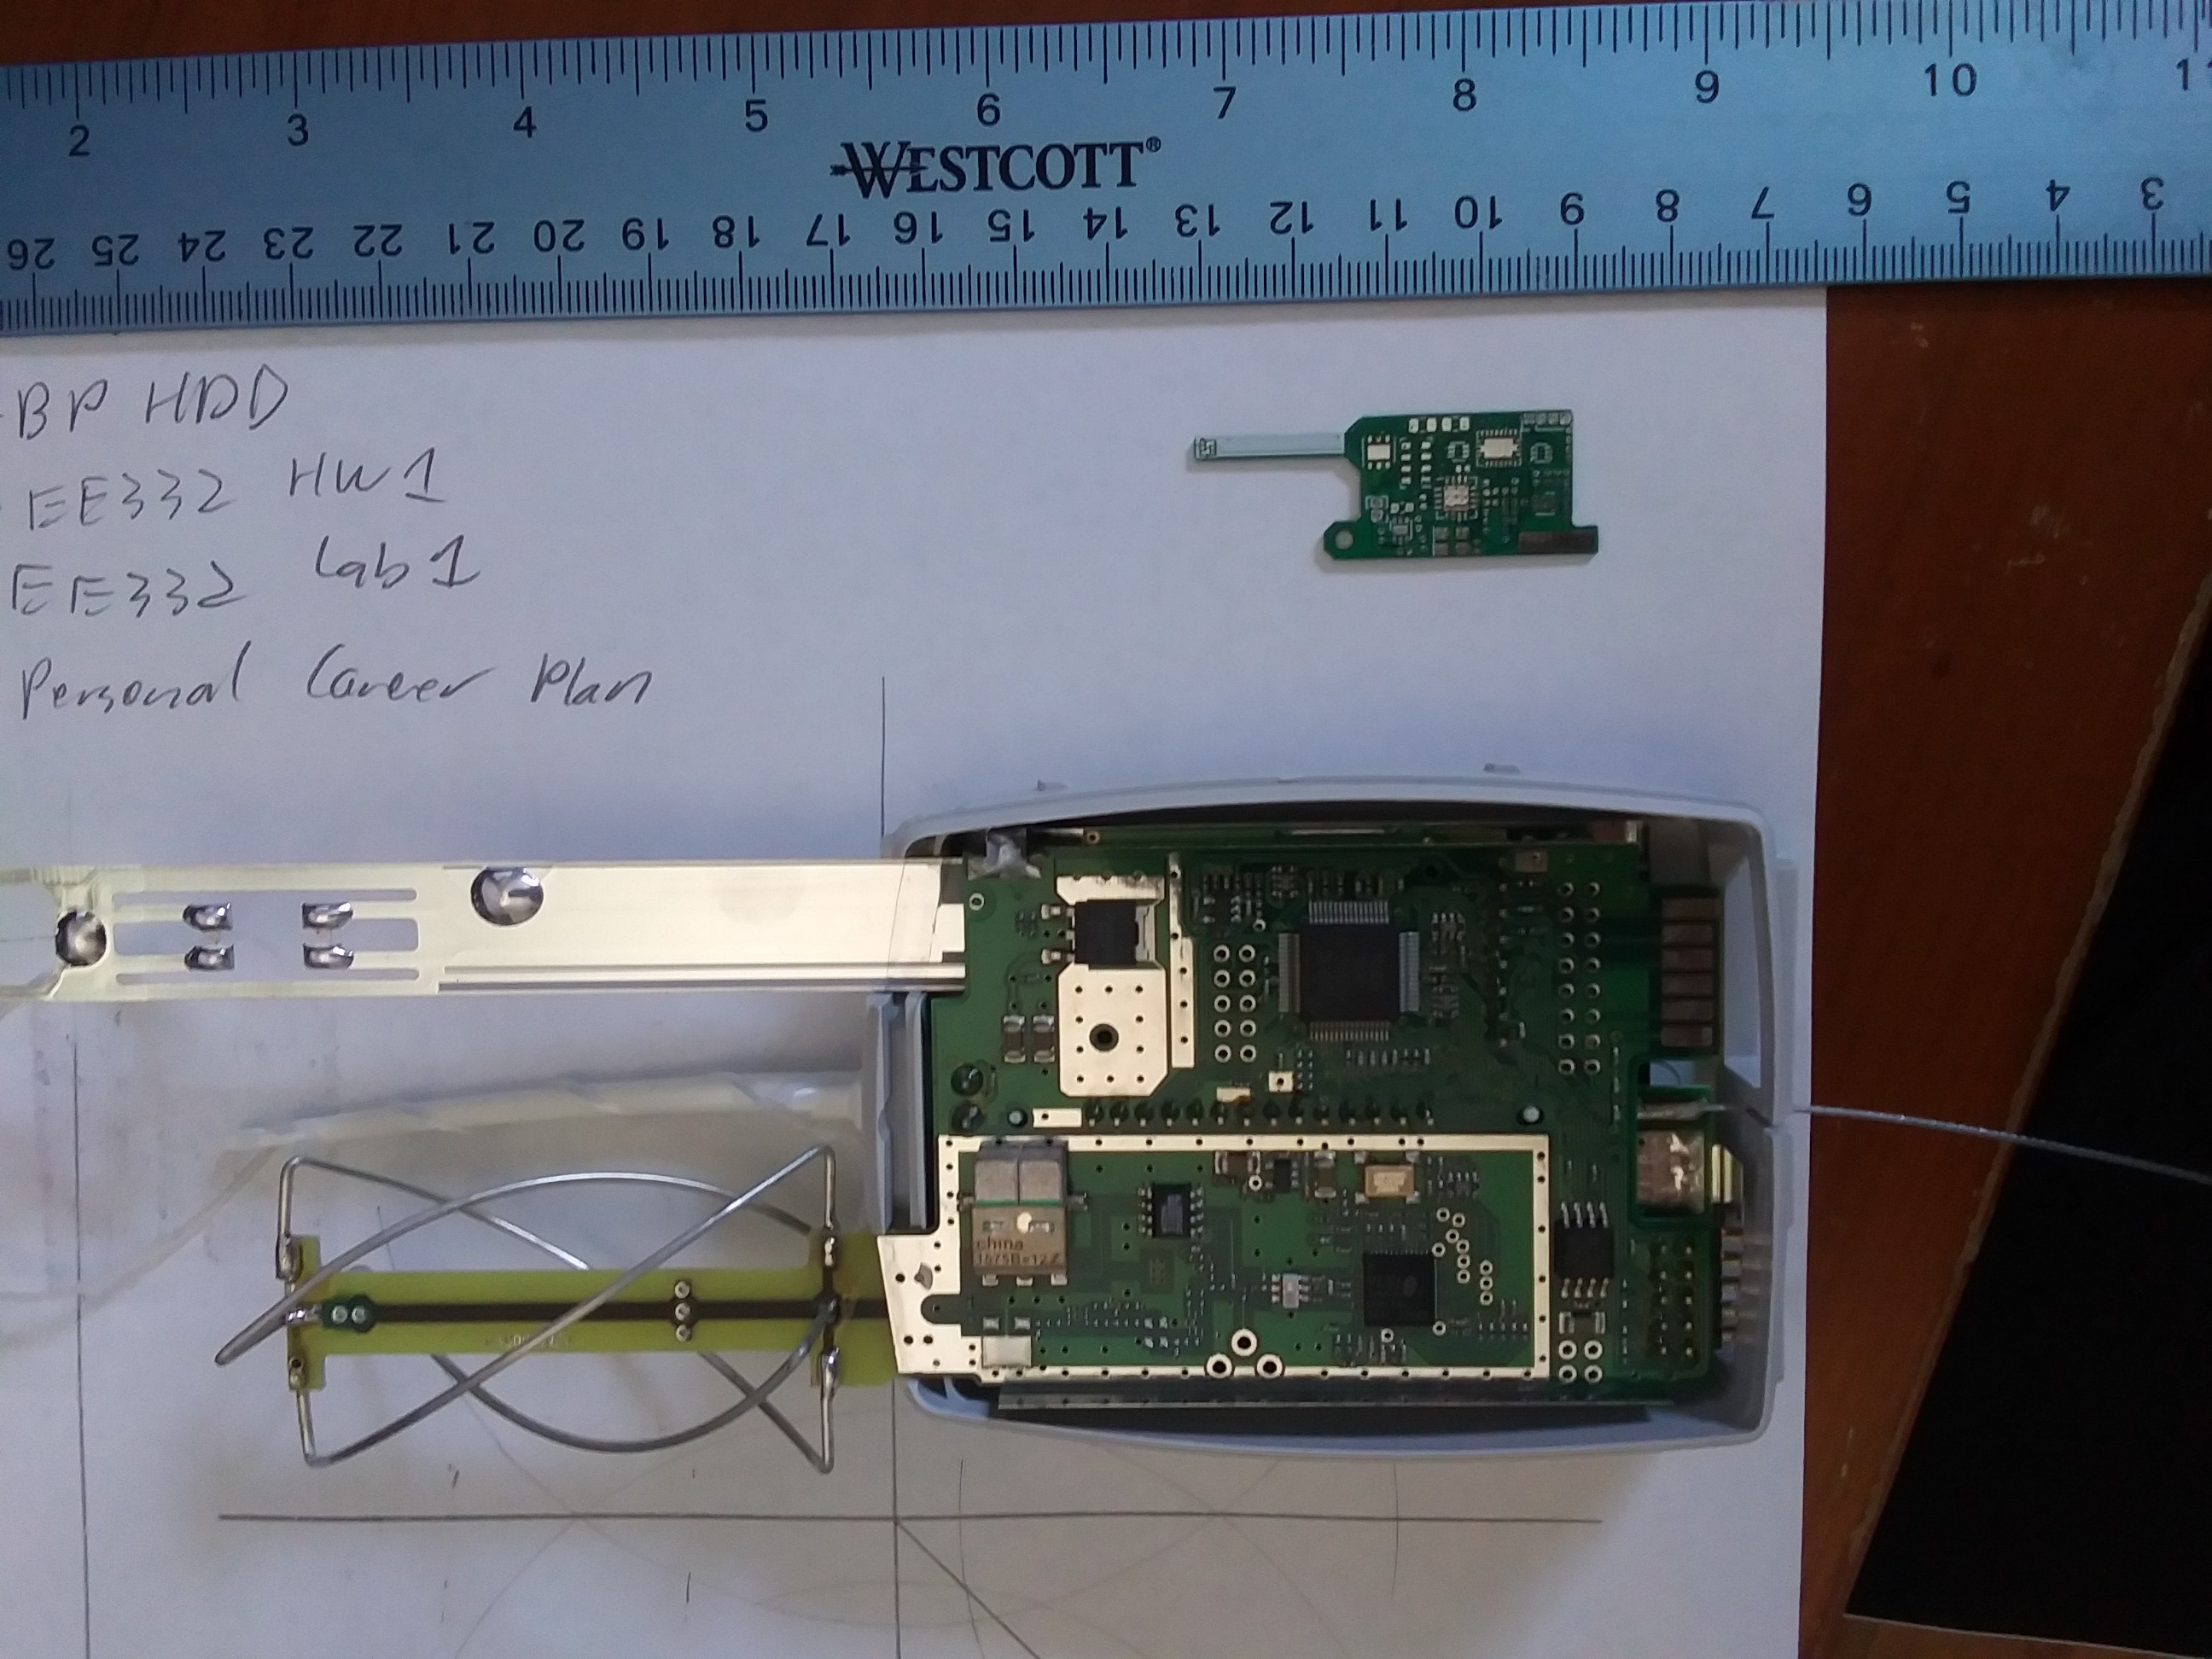 2 3 4 5 6 7 8 9 10
WESTCOTT®
26 25 24 23 22 21 20 19 18 17 16 15 14 13 12 11 10 9 8 7 6 5 4 3
BP HDD
EE332 HW1
EE332 Lab 1
Personal Career Plan
china